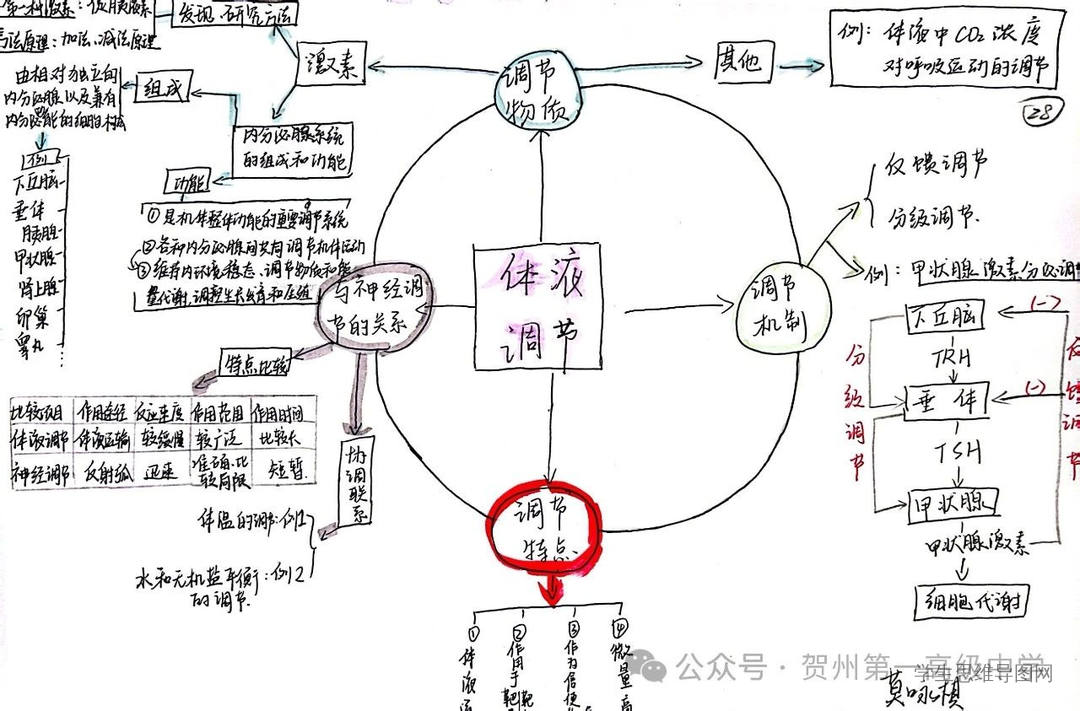 发现、研究方法
方法原理：加法、减法原理
激素
调节
物质
其他
例：体液中CO2浓度
对呼吸运动的调节
28
组成
由相对独立的
内分泌腺以及兼有
内分泌功能的细胞构成
例
下丘脑
垂体
胰腺
甲状腺
肾上腺
卵巢
睾丸
内分泌腺系统
的组成和功能
功能
①是机体整体功能的重要调节系统
②各种内分泌腺间共同调节机体活动
③维持内环境稳态、调节物质和能
量代谢、调控生长发育和生殖
体液
调节
与神经调
节的关系
调节
机制
反馈调节
分级调节
例：甲状腺激素分泌调
下丘脑
(-)
TRH
垂体
(-)
TSH
甲状腺
甲状腺激素
细胞代谢
分级调节
反馈调节
特点比较
比较项目 作用途径 反应速度 作用范围 作用时间
体液调节 体液运输 较缓慢 较广泛 比较长
神经调节 反射弧 迅速 准确、比较局限 短暂
协调联系
体温的调节：例1
水和无机盐平衡：例2
的调节
调节
特点
①体液运
②作用于靶
③作为信使
④微量高
公众号·贺州第一高级中学
学生思维导图网